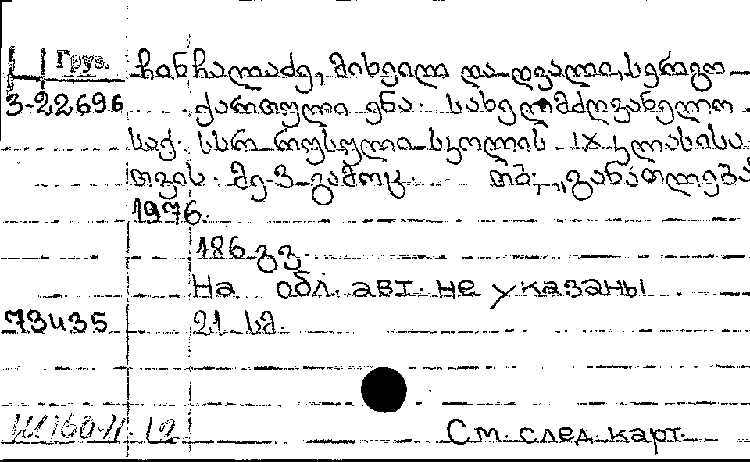 Груз. ჩინჩალაძე, მიხეილ და ღვალი, სერგო
3-22696 ქართული ენა. სახელმძღვანელო
საქ. სსრ რუსული სკოლის IX კლასისა
თვის. მე-3 გამოც. თბ., „განათლება
1976.
186 გვ.
На обл. авт. не указаны
73435 21 სმ.
Ш160-11. 12
См. след. карт.